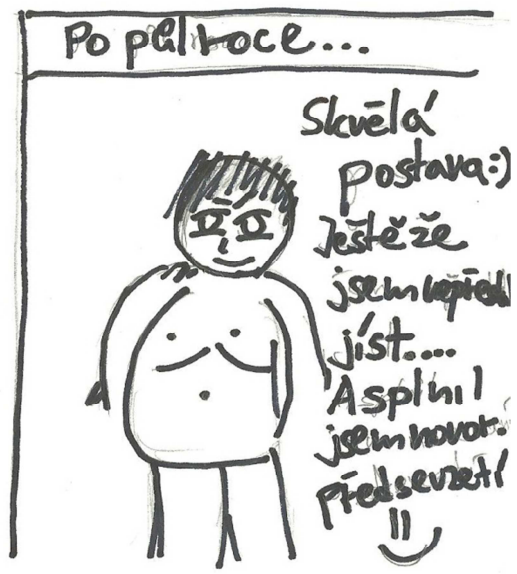 Po půlroce...
Skvělá
postava:)
Ještěže
jsem
jíst....
A splnil
jsem novor.
předsevzetí